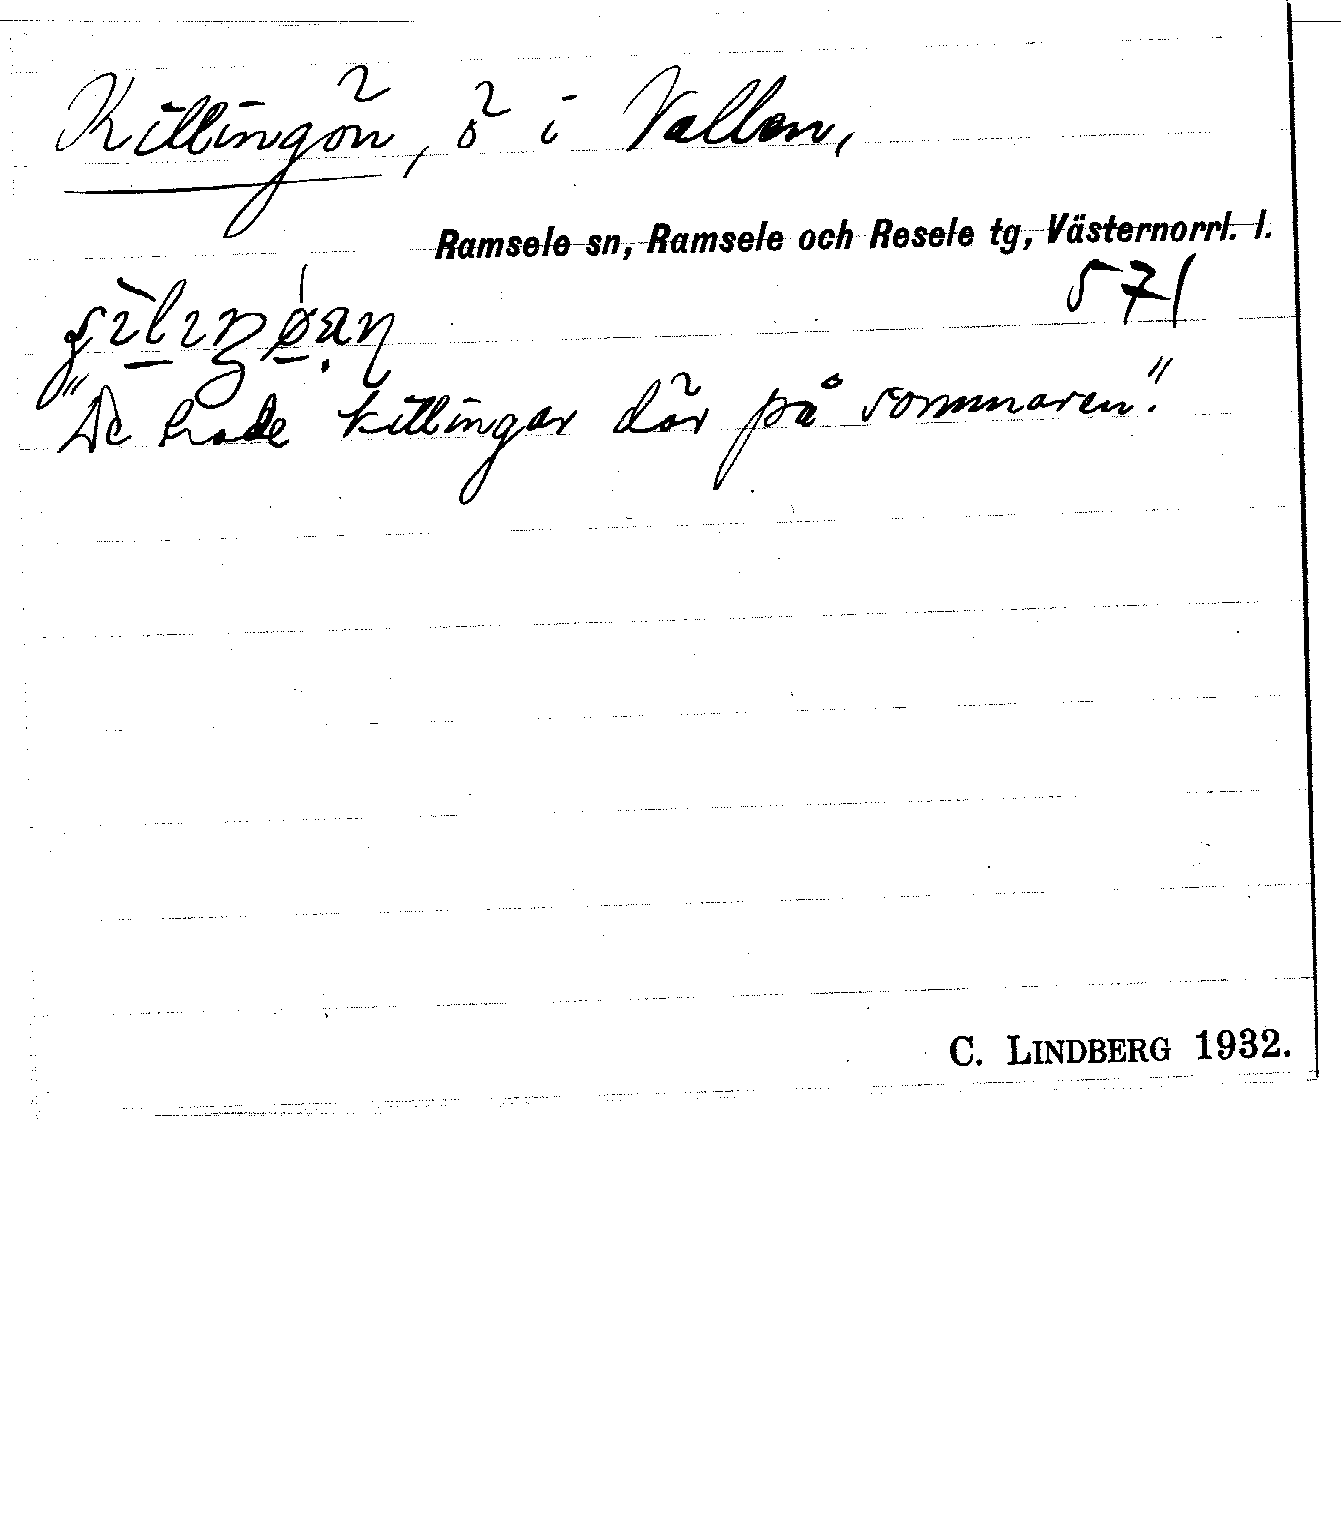 Killingön, ö i Vallen,
Ramsele sn, Ramsele och Resele tg, Västernorrl. l.
571
"De hade killingar där på sommaren."
C. LINDBERG 1932.